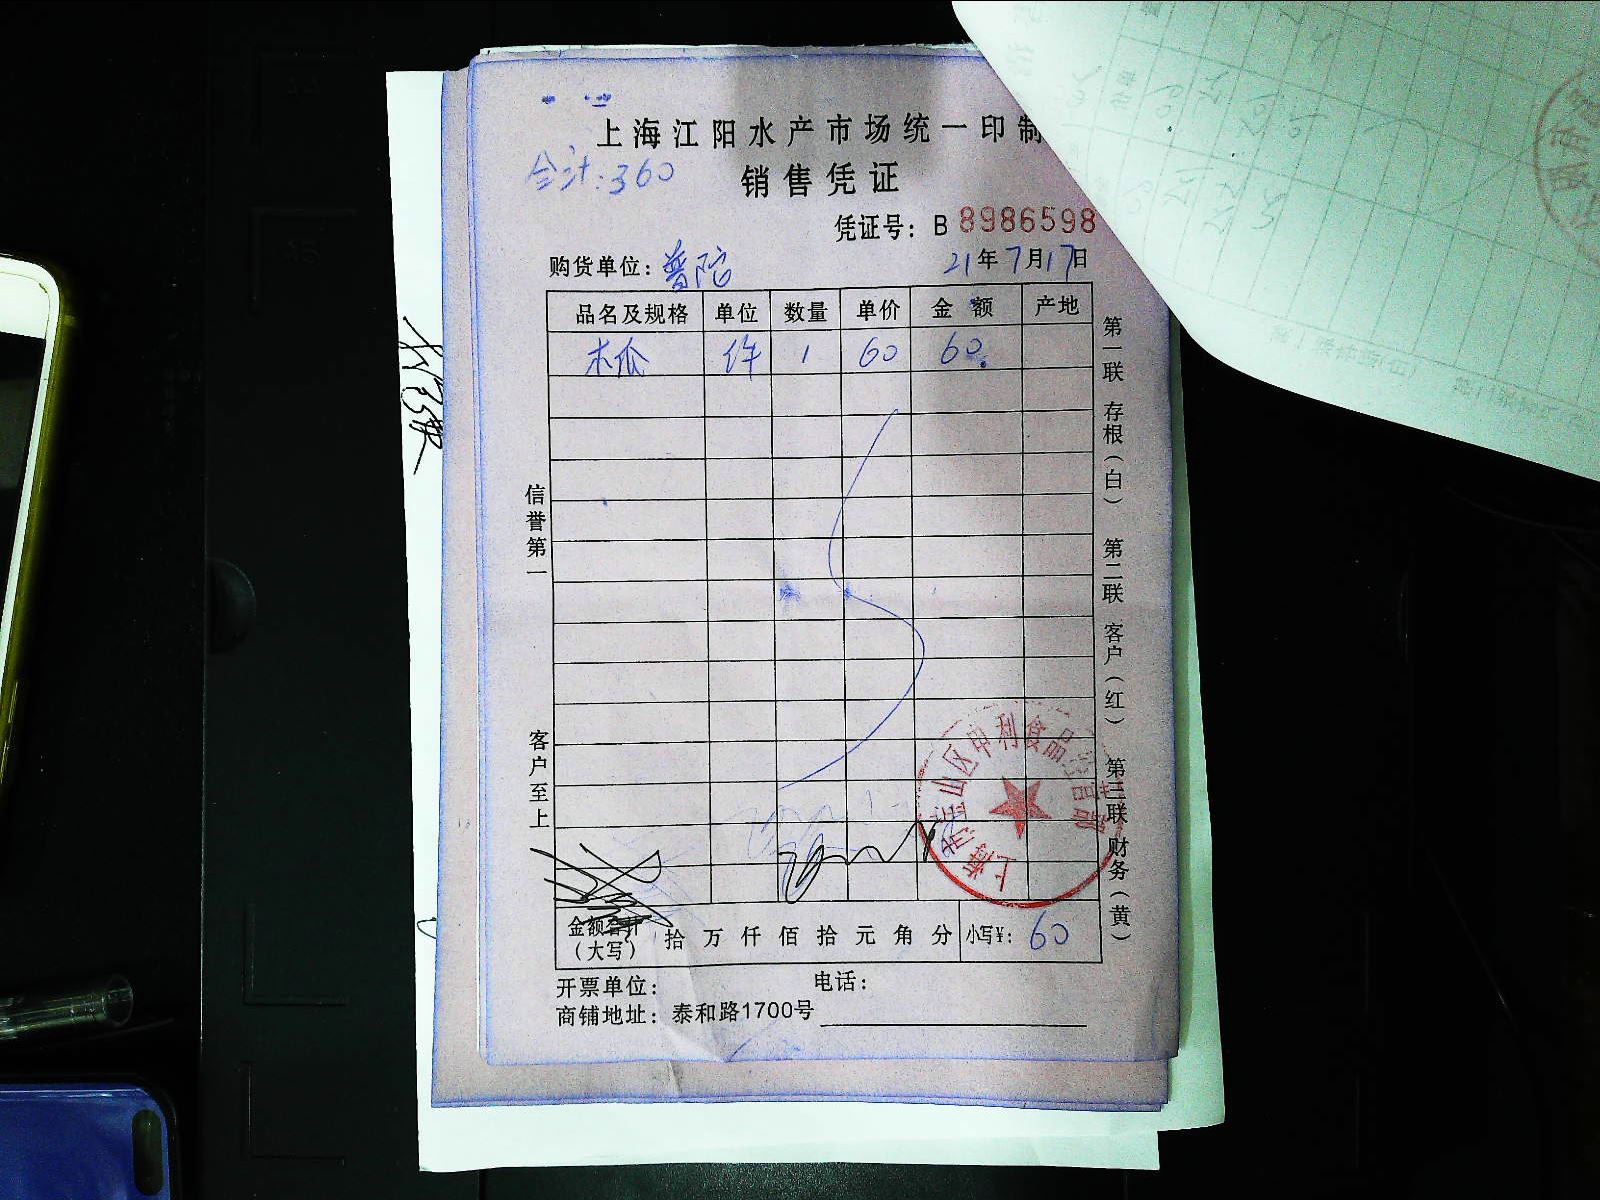 上海江阳水产市场统一印制
合计:360
销售凭证
凭证号: B 8986598
购货单位: 普陀 21年7月17日
品名及规格 单位 数量 单价 金额 产地
木瓜 件 1 60 60
金额合计(大写) 拾万仟佰拾元角分 小写¥: 60
开票单位: 电话:
商铺地址: 泰和路1700号
信誉第一 客户至上
第一联 存根(白) 第二联 客户(红) 第三联 财务(黄)
上海市宝山区申利食品经营部